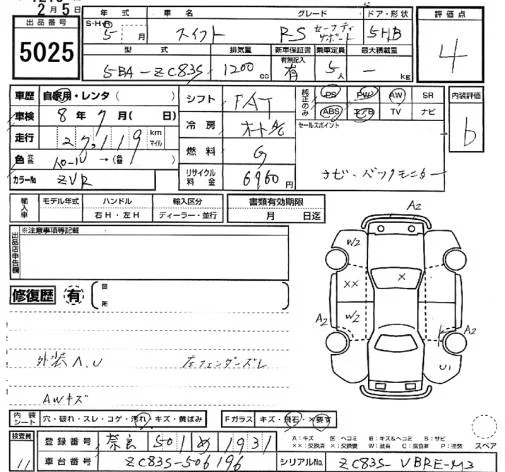 2月5日
出品番号
5025
年式 車名 グレード ドア・形状
S・H 5 年 月 スイフト RS セーフティサポート 5HB
型式 排気量 新車保証書 乗車定員 最大積載量
5BA-ZC83S 1200 cc 有無記入 有 5 人 - kg
評価点
4
車歴 自家用・レンタ( )
車検 8年7月( )日
走行 27,119 km マイル
色
カラーNo ZVR
シフト FAT
冷房 オートAC
燃料 G
リサイクル料金 6960円
純正のみ PS PW AW SR
ABS エアB TV ナビ
セールスポイント
ナビ・バックモニター
内装評価
b
輸入車 モデル年式 ハンドル 輸入区分
年 右H・左H ディーラー・並行
書類有効期限
月 日迄
出品店申告欄 ※注意事項等記載
修復歴 有 箇所
外装A,U 左フェンダーズレ
AWキズ
A2
W2
XX X
A2 W2 A2
U1
内装シート 穴・破れ・スレ・コゲ・汚れ・キズ・黄ばみ Fガラス キズ・飛石・X要す
検査員 11
登録番号 奈良 501 め 1931
車台番号 ZC83S-506196
A:キズ E:ヘコミ B:キズ&ヘコミ S:サビ
スペア
シリアルNo. ZC83S-VBRE-M3